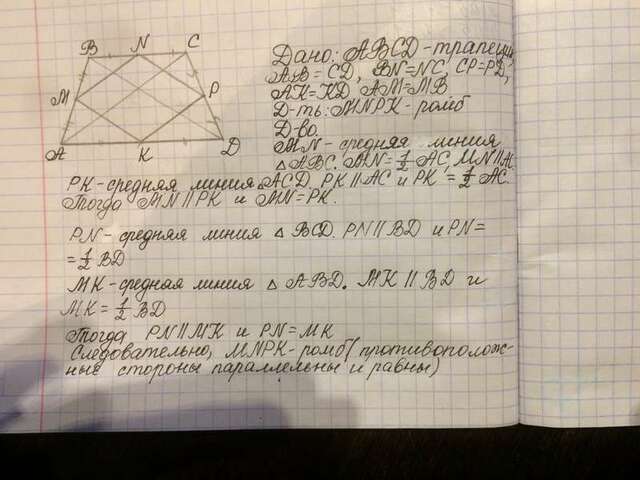 B N C
M P
A K D
Дано: ABCD-трапеция
AB = CD, BN=NC, CP=PD,
AK=KD AM=MB
Д-ть: MNPK-ромб
Д-во.
MN-средняя линия
△ABC. MN=1/2 AC, MN||AC
PK-средняя линия ACD PK||AC и PK = 1/2 AC.
Тогда MN||PK и MN=PK.
PN-средняя линия △ BCD. PN||BD и PN=
=1/2 BD
MK-средняя линия △ ABD. MK||BD и
MK=1/2 BD
Тогда PN||MK и PN=MK
Следовательно, MNPK-ромб(противополож-
ные стороны параллельны и равны)